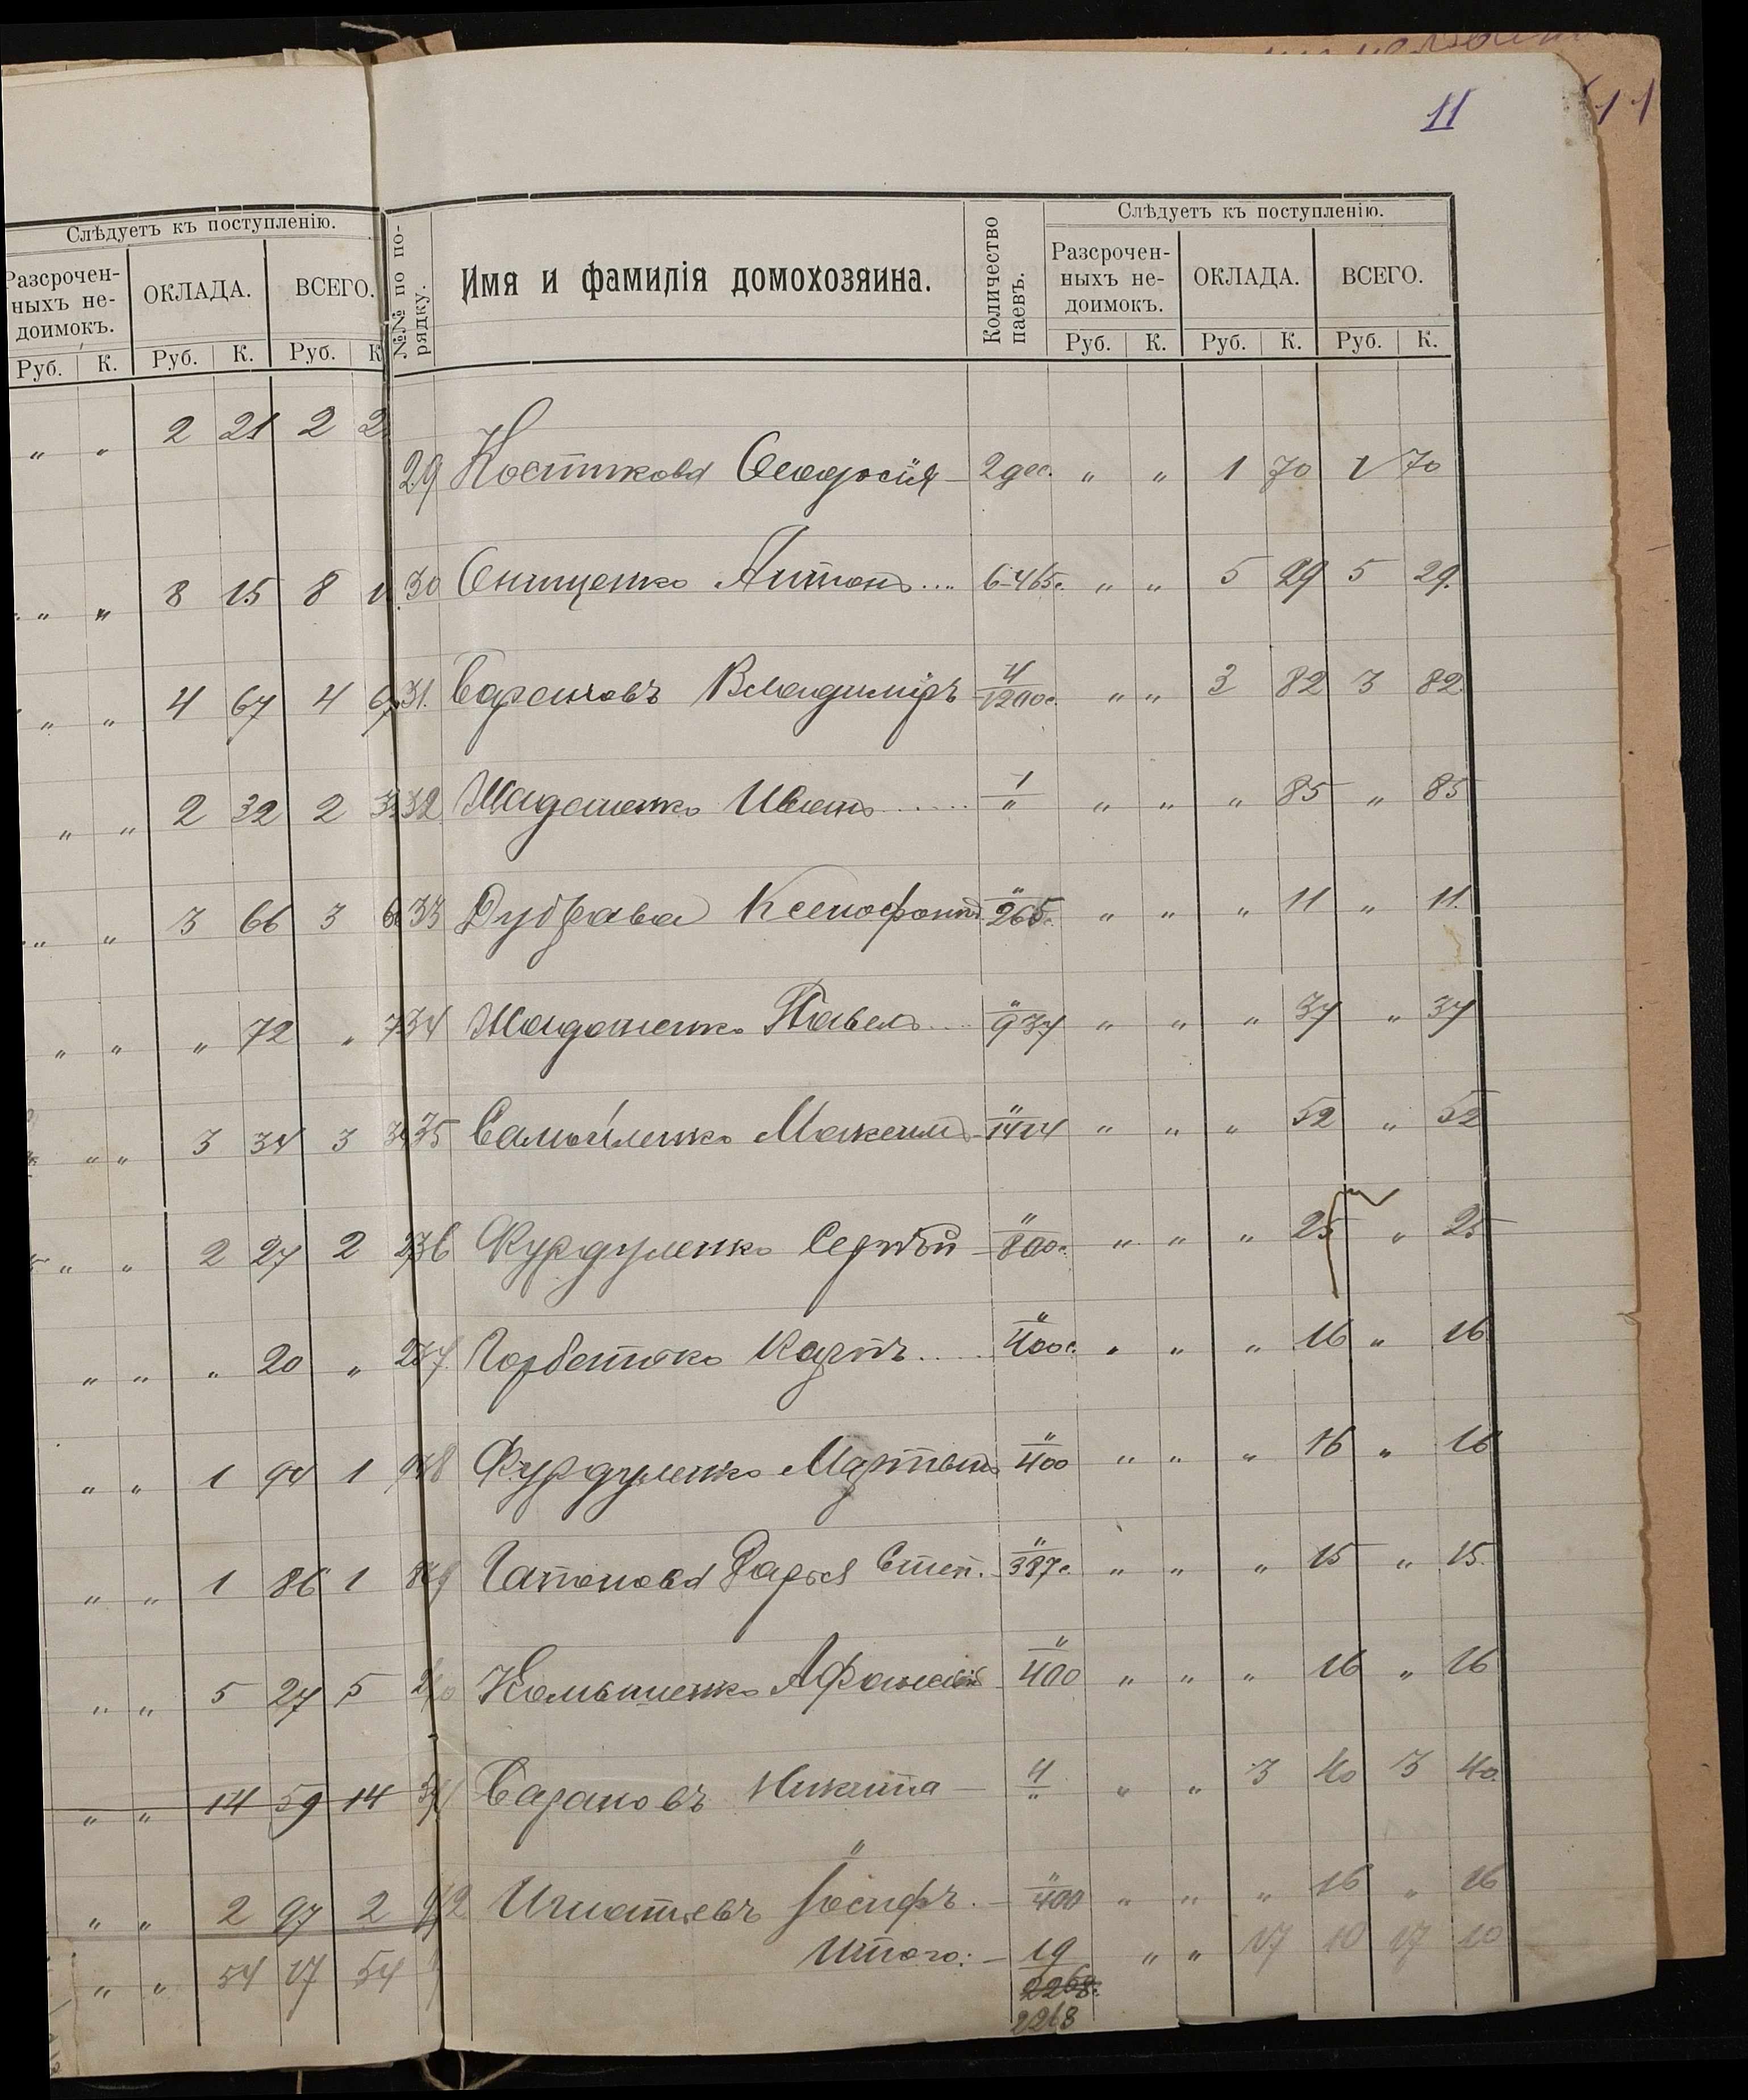 11
11
Слѣдуетъ къ поступленію.
Разсрочен-
ныхъ не-
доимокъ.
ОКЛАДА.
ВСЕГО.
Руб. К. Руб. К. Руб. К
" " 2 21 2 2
" " 8 15 8 1
" " 4 67 4 67
" " 2 32 2 32
" " 3 66 3 6
" " " 72 " 7
" " 3 34 3 34
" " 2 27 2 2
" " " 20 " 2
" " 1 94 1 9
" " 1 86 1 8
" " 5 27 5 2
" " 14 59 14 5
" " 2 97 2 9
" " 54 17 54
№№ по по-
рядку.
Имя и фамилія домохозяина.
Количество
паевъ.
Слѣдуетъ къ поступленію.
Разсрочен-
ныхъ не-
доимокъ.
ОКЛАДА.
ВСЕГО.
Руб. К. Руб. К. Руб. К.
29 Костикова Ѳеодосія 2 дес. " " 1 70 1 70
30 Онищенко Антонъ.... 6-465с. " " 5 29 5 29.
31. Барановъ Владиміръ 4/1200с. " " 3 82 3 82
32 Шадошенко Иванъ ...... 1/" " " " 85 " 85
33 Дубрава Ксенофонтъ "/265с. " " " 11 " 11.
34 Шадошенко Павелъ.... "/937 " " " 37 " 37
35 Самойленко Максимъ "/1414 " " " 52 " 52
36 Фурдуленко Сергѣй "/800с. " " " 25 " 25
37 Горбатько Карпъ..... "/400с. " " " 16 " 16
38 Фурдуленко Мартынъ "/400 " " " 16 " 16
39 Гапонова Дарья Степ. "/387с " " " 15 " 15.
40 Афанасій "/400 " " " 16 " 16
41 Барановъ Никита — 4/" " " 3 40 3 40.
42 Игнатьевъ Іосифъ. — "/400 " " " 16 " 16
Итого: — 19 " " 17 10 17 10
2268.
2268